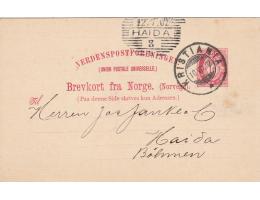 HAIDA
VERDENSPOSTFORENINGEN
(UNION POSTALE UNIVERSELLE.)
Brevkort fra Norge. (Norvège)
(Paa denne Side skrives kun Adressen.)
KRISTIANIA
Til
Herren Jos. Janke & Co
Haida
Böhmen